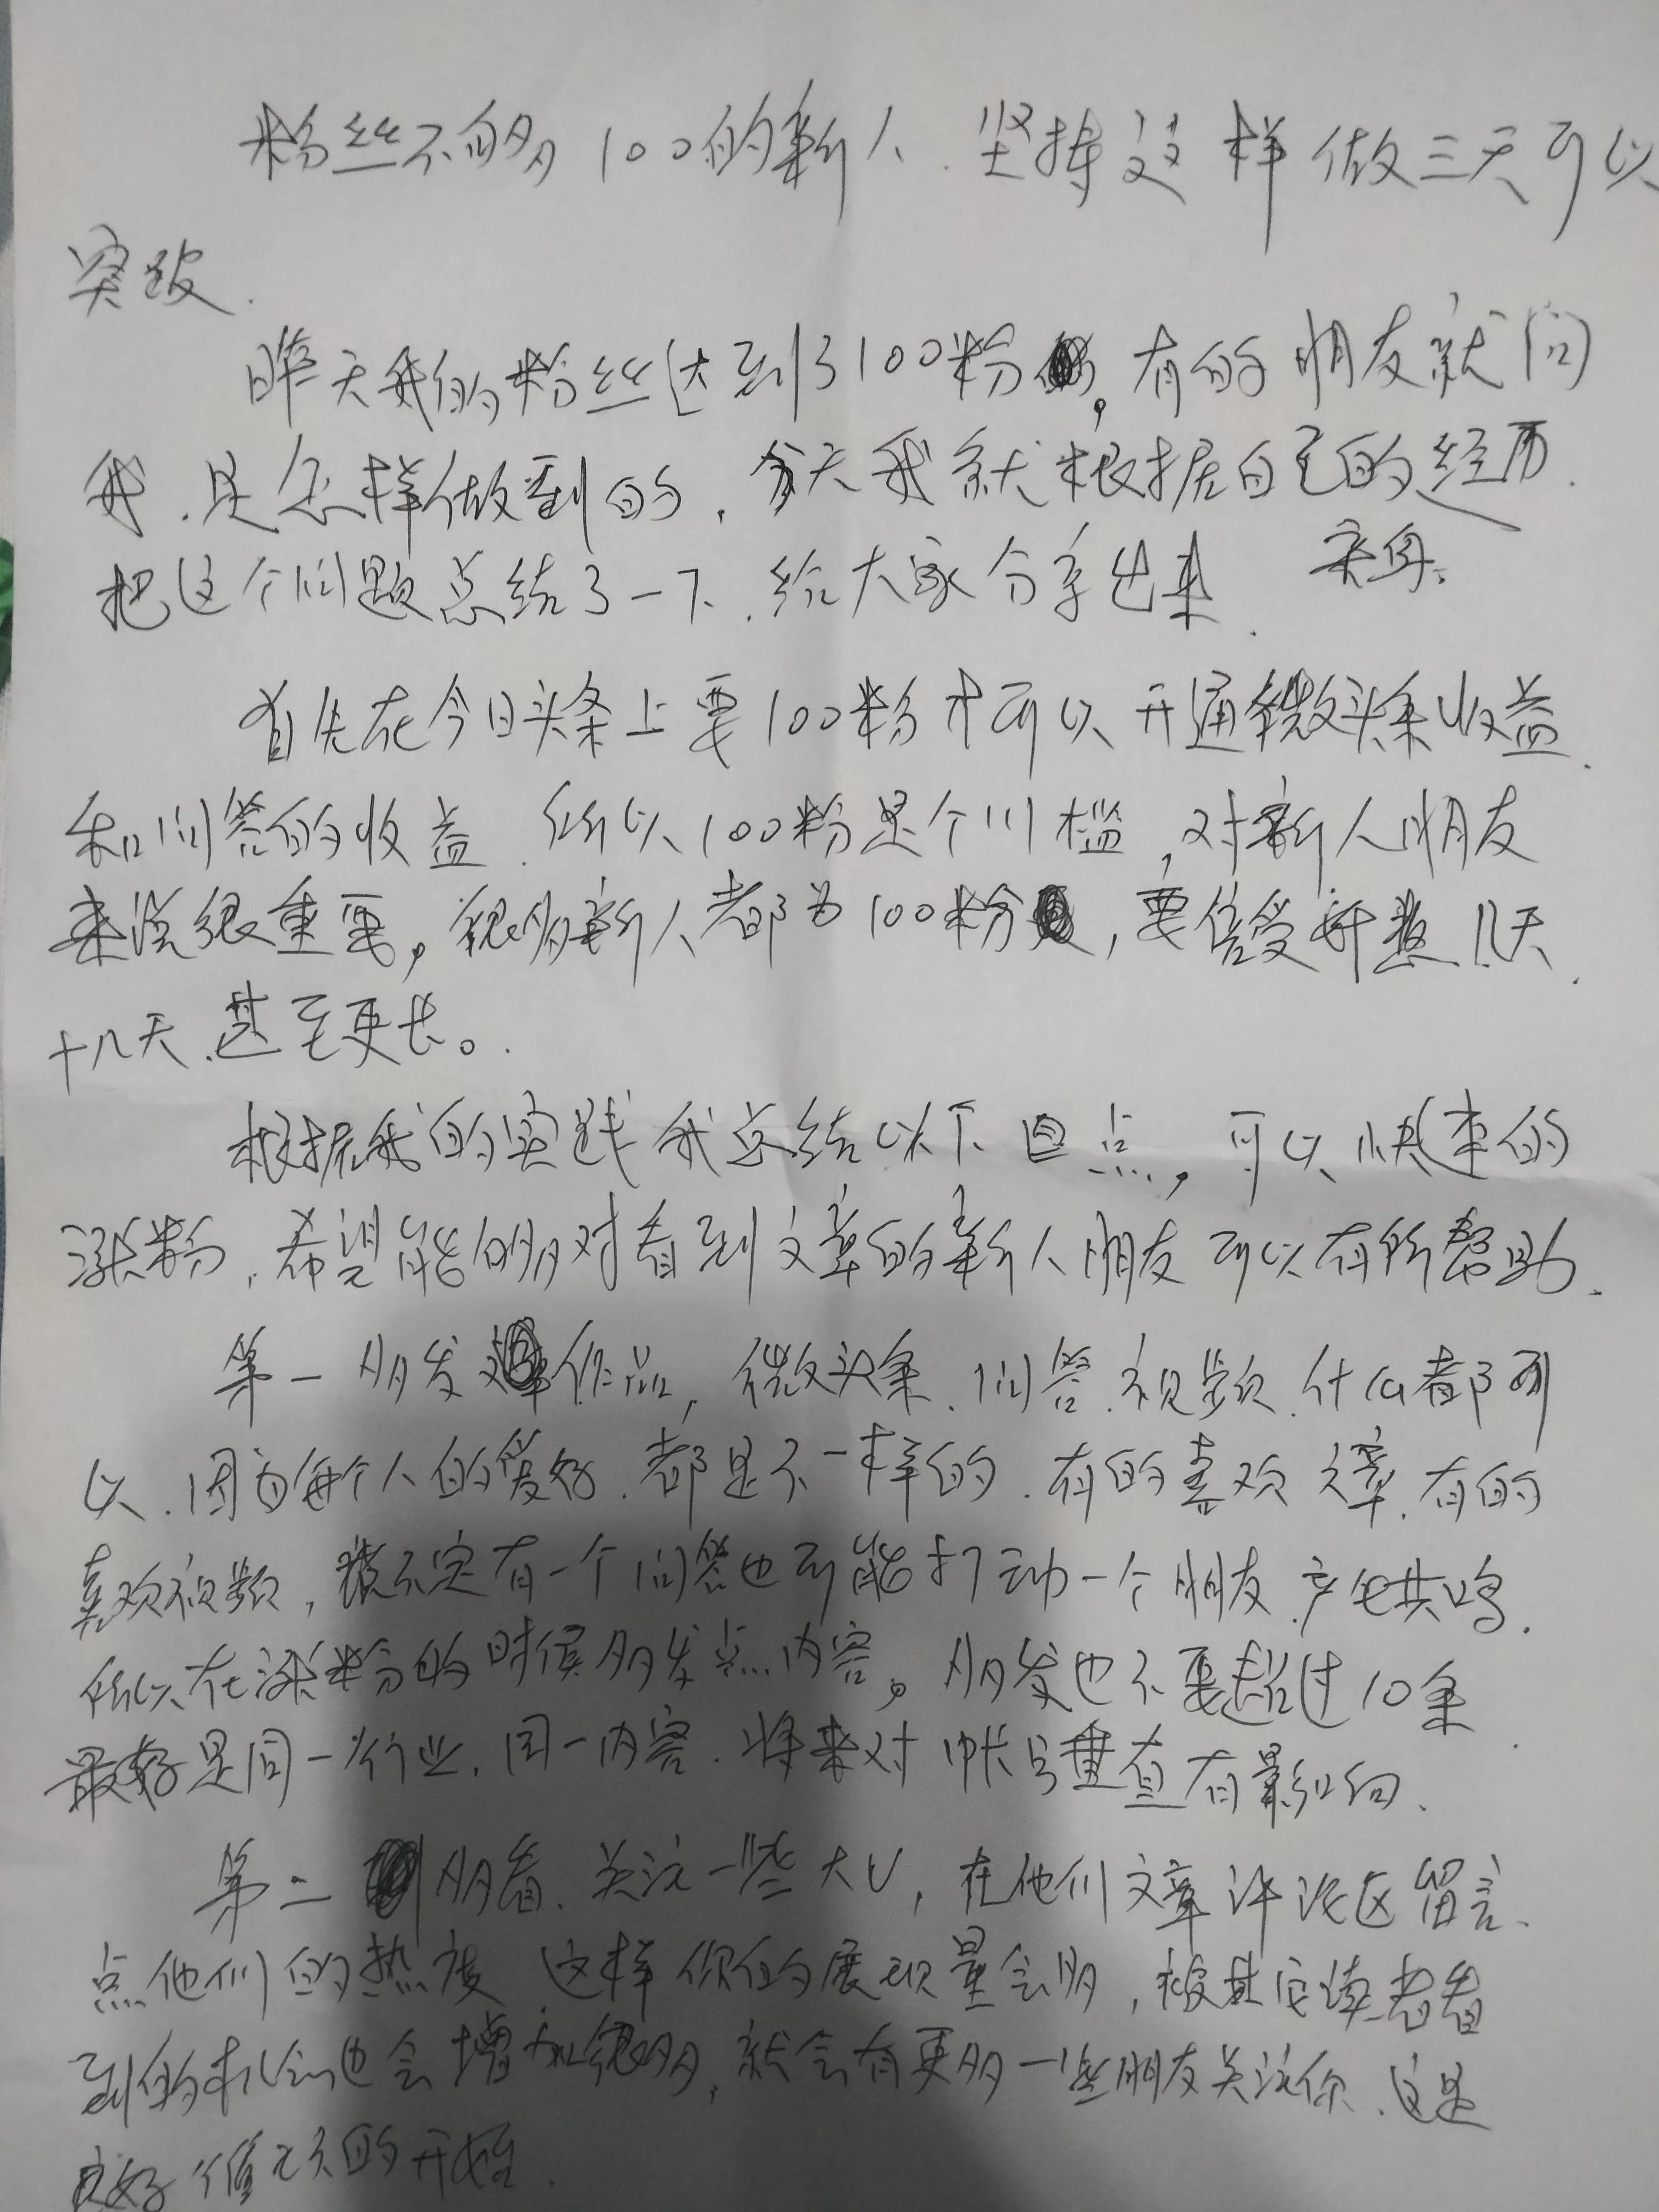 粉丝不够100的新人.坚持这样做三天可以
突破.
昨天我的粉丝达到了100粉,有的朋友就问
我.是怎样做到的.今天我就根据自己的经历.
把这个问题总结了一下.给大家分享出来.
首先在今日头条上要100粉才可以开通微头条收益.
和问答的收益.所以100粉是个门槛,对新人朋友
来说很重要,很多新人都为100粉,要倍受煎熬几天.
十几天.甚至更长。
根据我的实践我总结以下四点,可以快速的
涨粉,希望能够对看到文章的新人朋友可以有所帮助.
第一多发作品,微头条.问答.视频.什么都可
以.因为每个人的爱好.都是不一样的.有的喜欢文章.有的
喜欢视频,说不定有一个问答也可能打动一个朋友.产生共鸣.
所以在涨粉的时候多发点内容。多发也不要超过10条
最好是同一行业.同一内容.将来对帐号垂直有影响.
第二多看.关注一些大V,在他们文章评论区留言.
点他们的热度 这样你的展现量会多,被其它读者看
到的机会也会增加很多,就会有更多一些朋友关注你.这是
良好的开始.